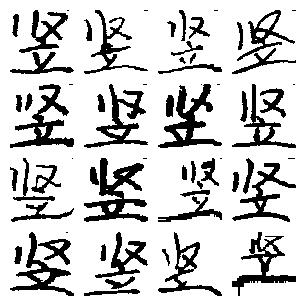 竖竖竖竖
竖竖竖竖
竖竖竖竖
竖竖竖竖